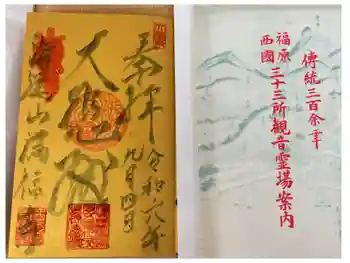 奉拝
令和六年
九月四日
大悲殿
山満福寺
傳統三百余年
福原
西國
三十三所觀音霊場案内